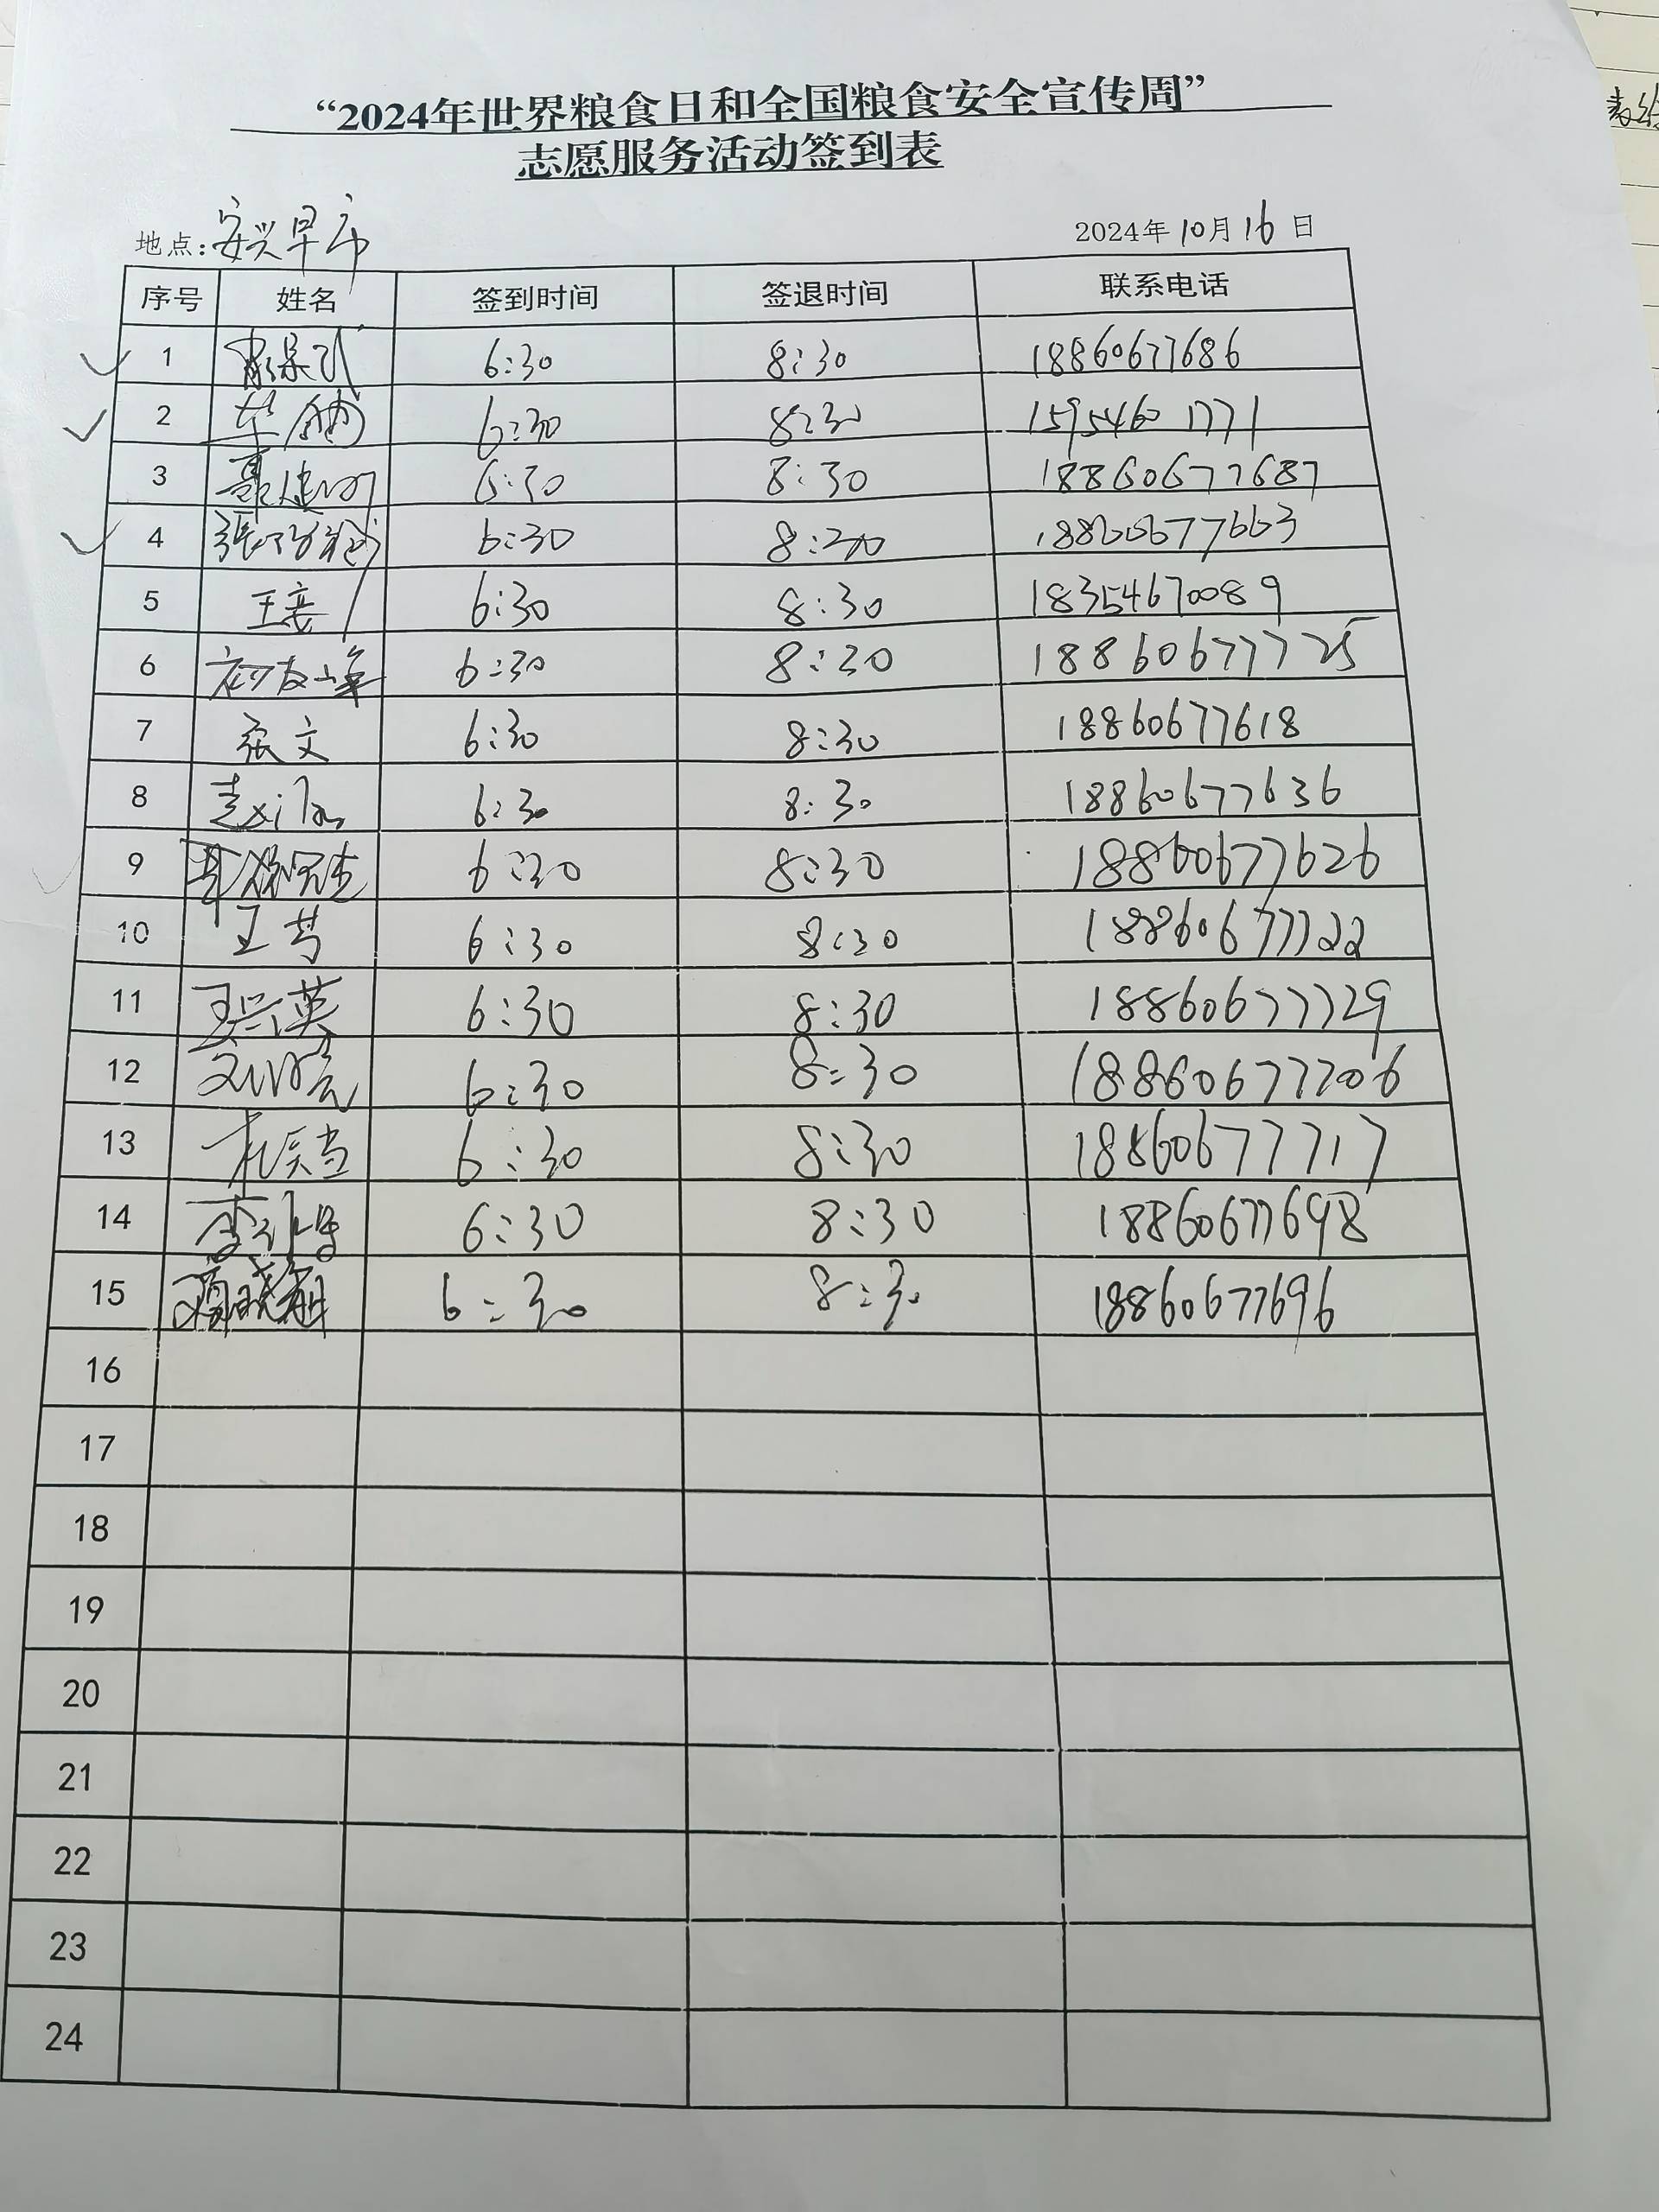 “2024年世界粮食日和全国粮食安全宣传周”
志愿服务活动签到表
地点:安兴早市 2024年10月16日
序号 姓名 签到时间 签退时间 联系电话
1 6:30 8:30 18860677686
2 6:30 8:30 15954601771
3 6:30 8:30 18860677687
4 6:30 8:30 18860677663
5 6:30 8:30 18354670089
6 6:30 8:30 18860677725
7 张文 6:30 8:30 18860677618
8 6:30 8:30 18860677636
9 6:30 8:30 18860677626
10 6:30 8:30 18860677722
11 王兴英 6:30 8:30 18860677729
12 6:30 8:30 18860677706
13 6:30 8:30 18860677717
14 6:30 8:30 18860677698
15 6:30 8:30 18860677696
16
17
18
19
20
21
22
23
24